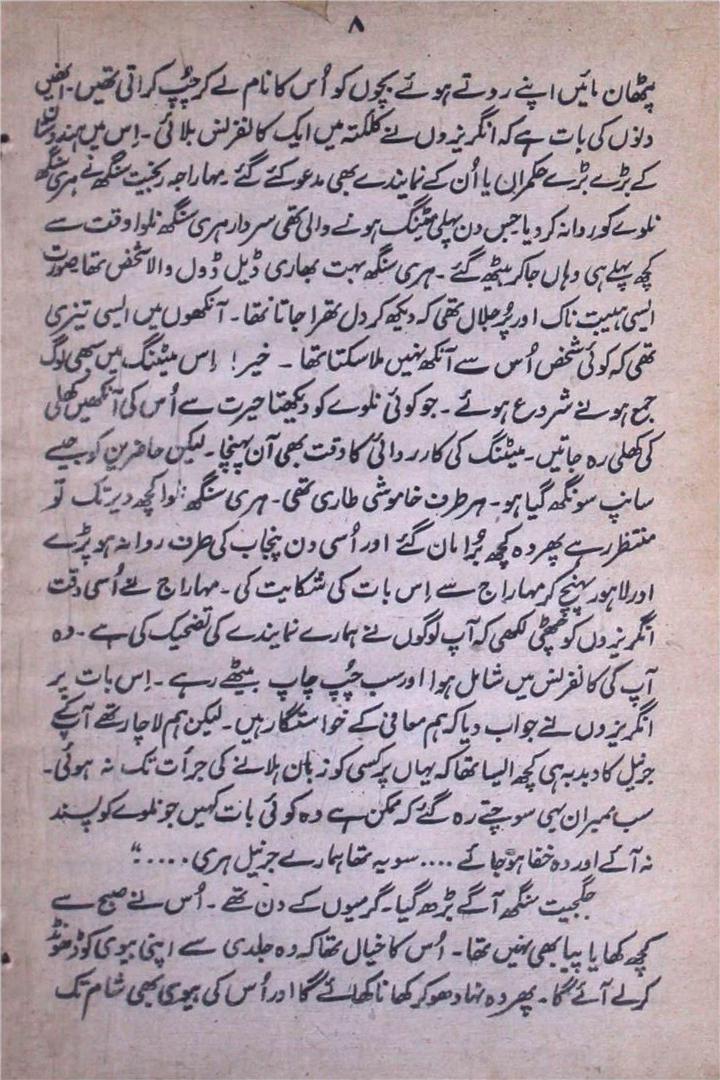 ۸
پٹھان مائیں اپنے روتے ہوئے بچوں کو اُس کا نام لے کر چُپ کراتی تھیں۔ انھیں
دنوں کی بات ہے کہ انگریزوں نے کلکتہ میں ایک کانفرنس بلائی۔ اِس میں ہندوستان
کے بڑے بڑے حکمران یا اُن کے نمایندے بھی مدعو کئے گئے۔ مہاراجہ رنجیت سنگھ نے ہری سنگھ
نلوے کو روانہ کر دیا جس دن پہلی میٹنگ ہونے والی تھی سردار ہری سنگھ نلوا وقت سے
کچھ پہلے ہی وہاں جا کر بیٹھ گئے۔ ہری سنگھ بہت بھاری ڈیل ڈول والا شخص تھا صورت
ایسی ہیبت ناک اور پُر جلال تھی کہ دیکھ کر دل تھرا جاتا تھا۔ آنکھوں میں ایسی تیزی
تھی کہ کوئی شخص اُس سے آنکھ نہیں ملا سکتا تھا ۔ خیر! اِس میٹنگ میں سبھی لوگ
جمع ہونے شروع ہوئے ۔ جو کوئی نلوے کو دیکھتا حیرت سے اُس کی آنکھیں کھلی
کی کھلی رہ جاتیں۔ میٹنگ کی کارروائی کا وقت بھی آن پہنچا۔ لیکن حاضرین کو جیسے
سانپ سونگھ گیا ہو۔ ہر طرف خاموشی طاری تھی۔ ہری سنگھ نلوا کچھ دیر تک تو
منتظر رہے پھر وہ کچھ بُرا مان گئے اور اُسی دن پنجاب کی طرف روانہ ہو پڑے
اور لاہور پہنچ کر مہاراج سے اِس بات کی شکایت کی۔ مہاراج نے اُسی وقت
انگریزوں کو چٹھی لکھی کہ آپ لوگوں نے ہمارے نمایندے کی تضحیک کی ہے۔ وہ
آپ کی کانفرنس میں شامل ہوا اور سب چُپ چاپ بیٹھے رہے ۔ اِس بات پر
انگریزوں نے جواب دیا کہ ہم معافی کے خواستگار ہیں۔ لیکن ہم لاچار تھے آپ کے
جرنیل کا دبدبہ ہی کچھ ایسا تھا کہ یہاں پر کسی کو زبان ہلانے کی جرأت تک نہ ہوئی۔
سب ممبران یہی سوچتے رہ گئے کہ ممکن ہے وہ کوئی بات کہیں جو نلوے کو پسند
نہ آئے اور وہ خفا ہو جائے .... سو یہ تھا ہمارے جرنیل ہری .....“
جگجیت سنگھ آگے بڑھ گیا۔ گرمیوں کے دن تھے ۔ اُس نے صبح سے
کچھ کھایا پیا بھی نہیں تھا۔ اُس کا خیال تھا کہ وہ جلدی سے اپنی بیوی کو ڈھونڈ
کر لے آئے گا۔ پھر وہ نہا دھو کر کھانا کھائے گا اور اُس کی بیوی بھی شام تک